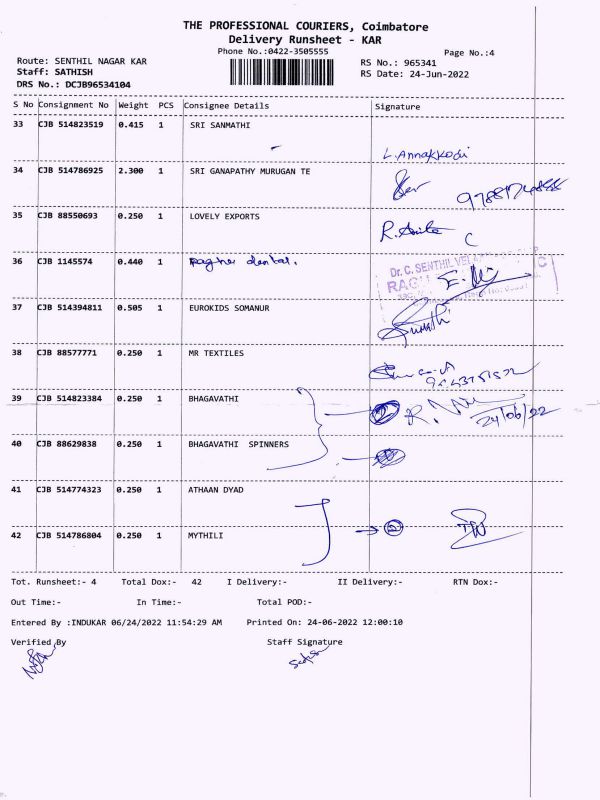 THE PROFESSIONAL COURIERS, Coimbatore
Delivery Runsheet - KAR
Phone No.:0422-3505555
Page No.:4
Route: SENTHIL NAGAR KAR
RS No.: 965341
Staff: SATHISH
RS Date: 24-Jun-2022
DRS No.: DCJB96534104
S No Consignment No Weight PCS Consignee Details Signature
33 CJB 514823519 0.415 1 SRI SANMATHI
L. Annakkodi
34 CJB 514786925 2.300 1 SRI GANAPATHY MURUGAN TE
35 CJB 88550693 0.250 1 LOVELY EXPORTS
R. Anita
36 CJB 1145574 0.440 1 Raghu dental.
Dr. C. SENTHIL
37 CJB 514394811 0.505 1 EUROKIDS SOMANUR
38 CJB 88577771 0.250 1 MR TEXTILES
39 CJB 514823384 0.250 1 BHAGAVATHI
24/06/22
40 CJB 88629838 0.250 1 BHAGAVATHI SPINNERS
41 CJB 514774323 0.250 1 ATHAAN DYAD
42 CJB 514786804 0.250 1 MYTHILI
Tot. Runsheet:- 4 Total Dox:- 42 I Delivery:- II Delivery:- RTN Dox:-
Out Time:- In Time:- Total POD:-
Entered By :INDUKAR 06/24/2022 11:54:29 AM Printed On: 24-06-2022 12:00:10
Verified By Staff Signature